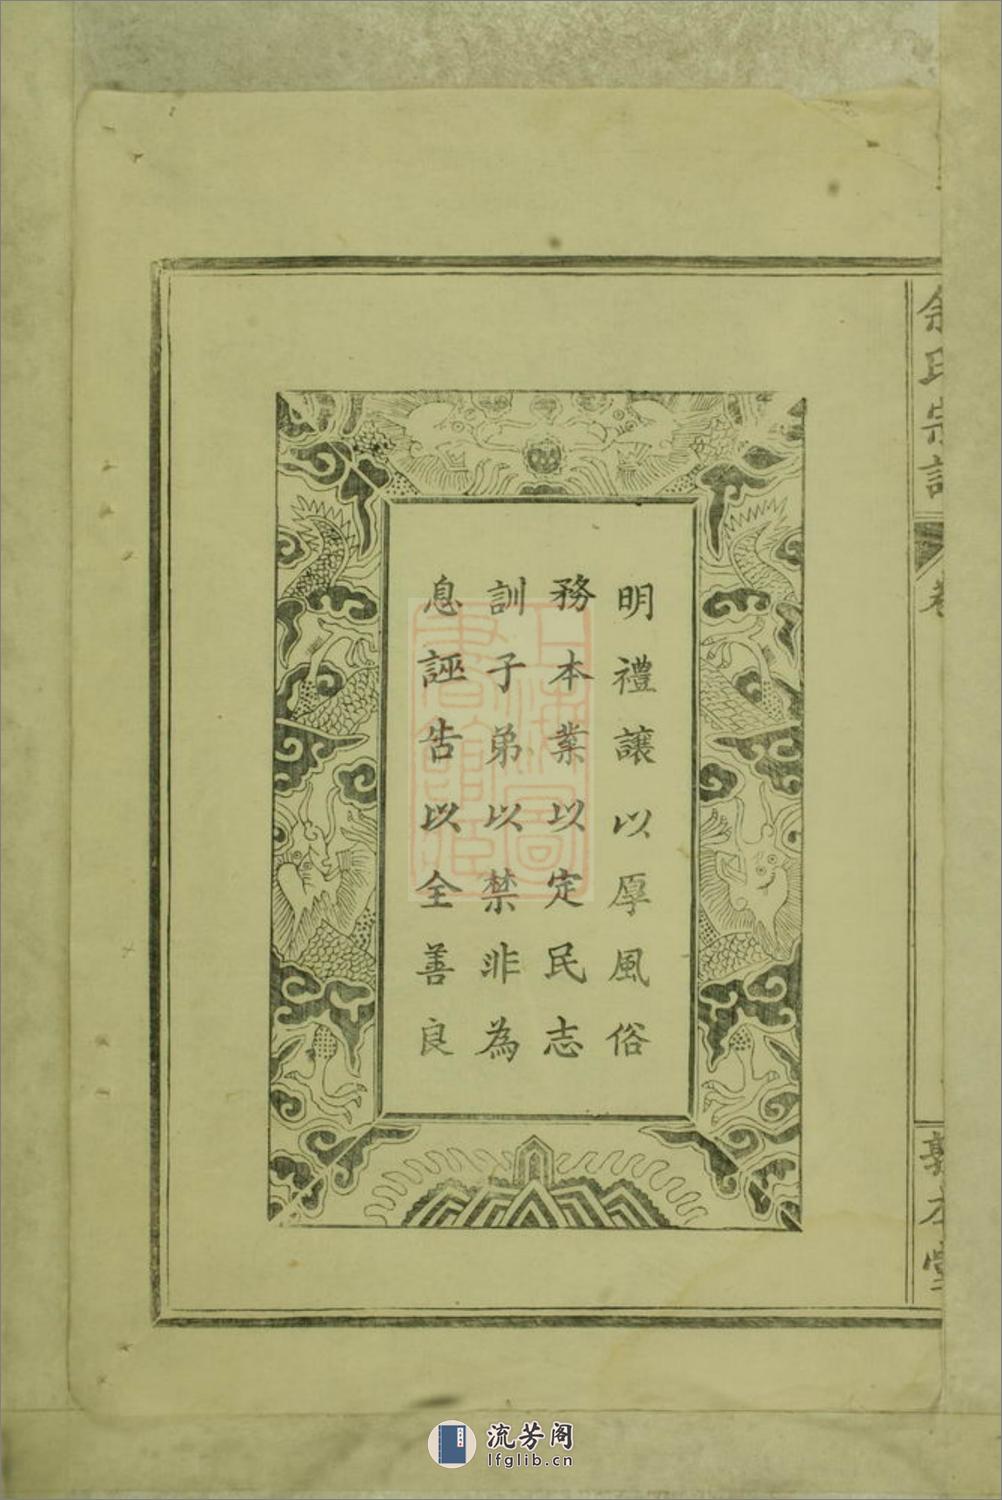 余氏宗譜
卷
敦本堂
明禮讓以厚風俗
務本業以定民志
訓子弟以禁非為
息誣告以全善良
上海圖書館藏
流芳阁
lfglib.cn